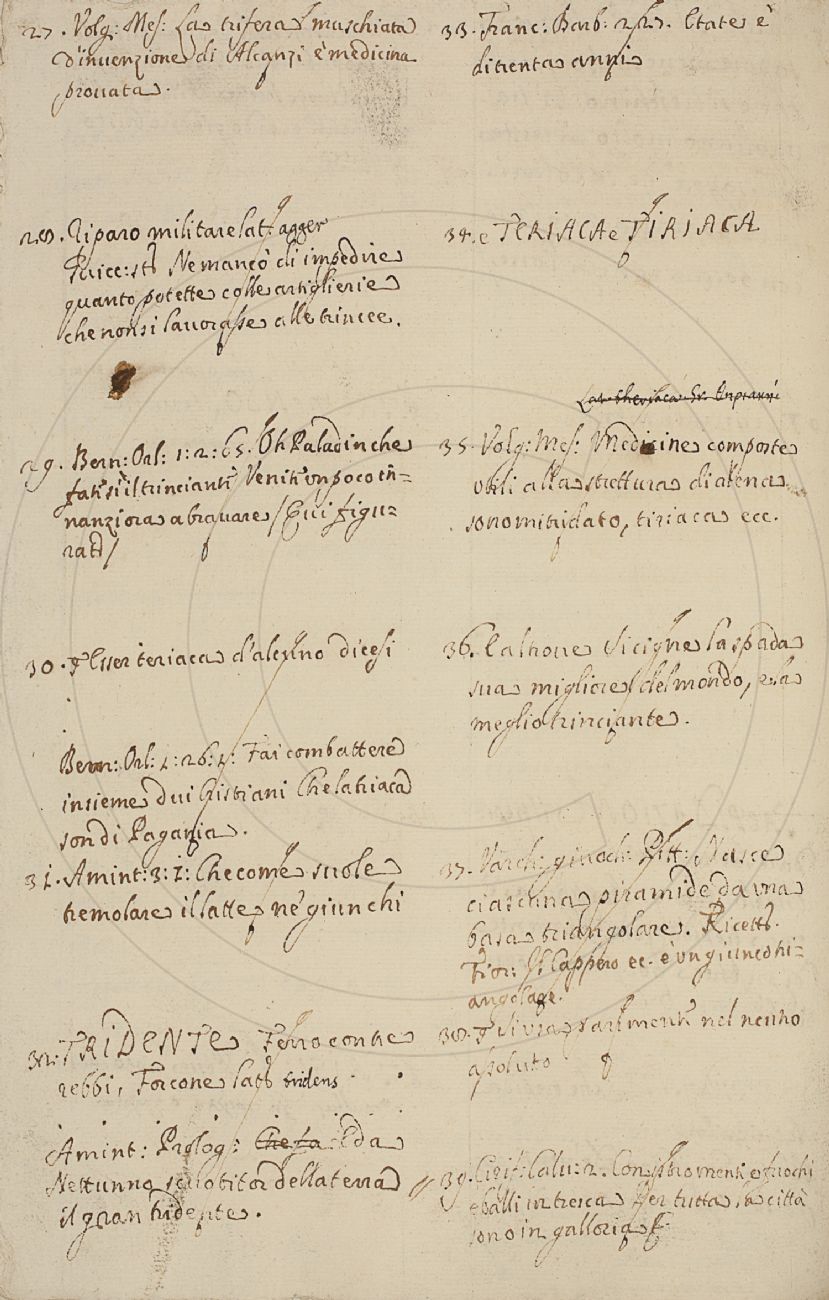 27. Volg: Mes: La trifera muschiata
d'invenzione di Alcanzi è medicina
provata.
28. Riparo militare lat: agger
Guicc: st: Ne mancò di impedire
quanto potette colle artiglierie
che non si lavorasse alle trincee.
29. Bern: Orl: 1: 2: 65. Oh Paladin che
fate sì il trincianti Venite un poco in=
nanzi ora a bravare / Qui figu=
rat: /
30. Esser teriaca d'alcuno dicesi
Bern: Orl: 1: 26: 1: Fai combattere
insieme dui Cristiani Che la triaca
son di Pagania.
31. Amint: 3: 1: Che come suole
tremolare il latte ne' giunchi
32. TRIDENTE Ferro con tre
rebbi, Forcone lat: tridens
Amint: Prolog: Che fa E da
Nettunno scuotitor della terra
il gran tridente.
33. Franc: Barb: 252. Etate è
di trenta anni
34. e TERIACA e TIRIACA
35. Volg: Mes: Medicine composte
utili alla strettura di alena
sono mitridato, tiriaca ecc.
36. E altrove Si cigne la spada
sua migliore del mondo, e la
meglio trinciante.
37. Varch: giuoch: Pitt: Nasce
ciascuna piramide da una
basa triangolare. Ricett:
Fior: Il Cappero ec. è un giunco tri=
angolare.
38. nel neutro
assoluto
39. Ciriff: Calv: 2. Con istromenti e fuochi
e balli in tresca Per tutta la città
sono in galloria